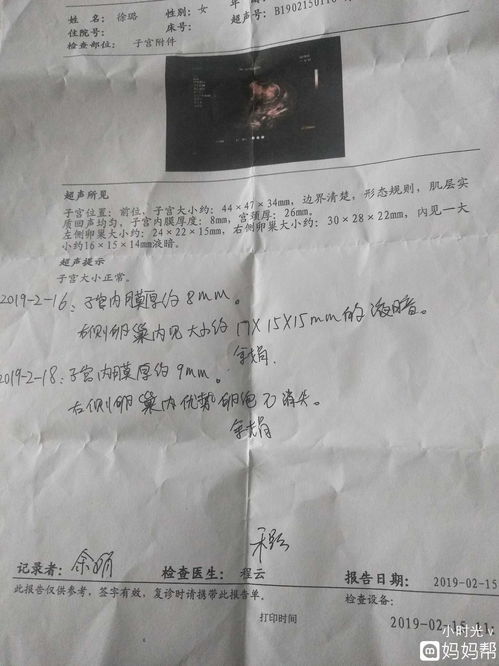 姓 名：徐璐 性别：女
超声号：B1902150110
住院号： 床号：
检查部位：子宫附件
超声所见
子宫位置：前位，子宫大小约：44×47×34mm，边界清楚，形态规则，肌层实
质回声均匀，子宫内膜厚度：8mm，宫颈厚：26mm。
左侧卵巢大小约：24×22×15mm，右侧卵巢大小约：30×28×22mm，内见一大
小约16×15×14mm液暗。
超声提示
子宫大小正常。
2019-2-16：子宫内膜厚约8mm。
右侧卵巢内见大小约17×15×15mm的液暗。
2019-2-18：子宫内膜厚约9mm。
右侧卵巢内优势卵泡已消失。
记录者： 检查医生：程云 报告日期：2019-02-15
此报告仅供参考，签字有效，复诊时请携带此报告单。 检查设备：
打印时间 2019-02-15 11:
小时光
妈妈帮